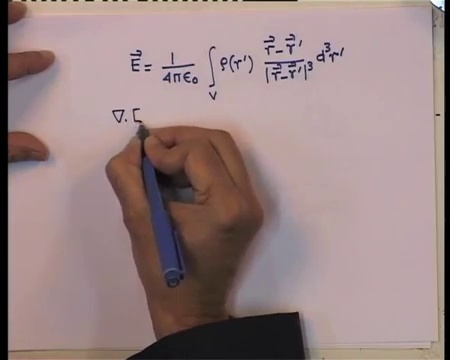 E⃗ = 1/4πϵ₀ ∫_V ρ(r') (r⃗ - r⃗')/|r⃗ - r⃗'|³ d³r'
∇. E